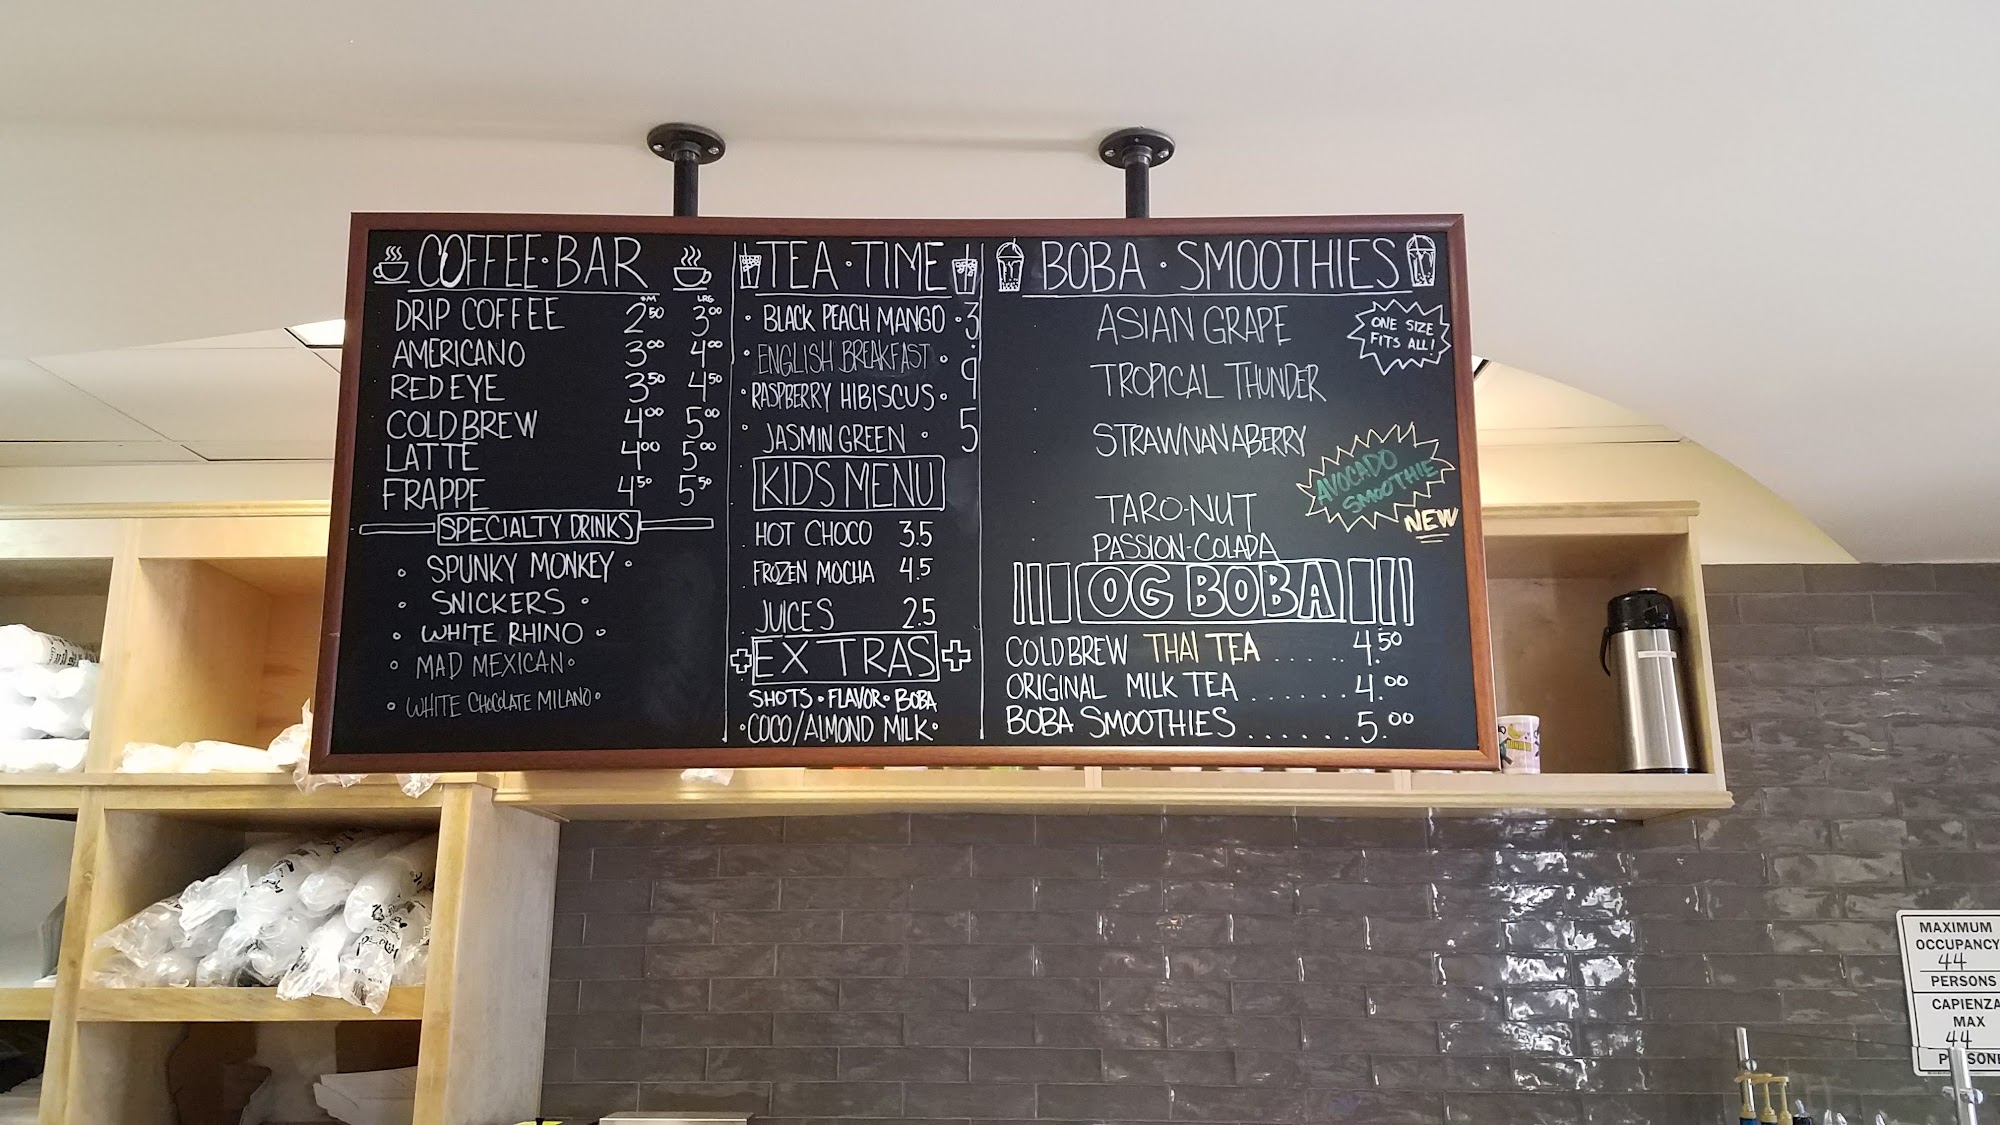 COFFEE·BAR
SM LRG
DRIP COFFEE 2.50 3.00
AMERICANO 3.00 4.00
RED EYE 3.50 4.50
COLD BREW 4.00 5.00
LATTE 4.00 5.00
FRAPPE 4.50 5.50
SPECIALTY DRINKS
• SPUNKY MONKEY •
• SNICKERS •
• WHITE RHINO •
• MAD MEXICAN •
• WHITE CHOCOLATE MILANO •
TEA·TIME
• BLACK PEACH MANGO • 3
• ENGLISH BREAKFAST •
• RASPBERRY HIBISCUS •
• JASMIN GREEN • 5
KIDS MENU
HOT CHOCO 3.5
FROZEN MOCHA 4.5
JUICES 2.5
+EXTRAS+
SHOTS • FLAVOR • BOBA
•COCO/ALMOND MILK•
BOBA·SMOOTHIES
ASIAN GRAPE
ONE SIZE
FITS ALL!
TROPICAL THUNDER
STRAWNANABERRY
AVOCADO
SMOOTHIE
NEW
TARO-NUT
PASSION-COLADA
OG BOBA
COLDBREW THAI TEA ..... 4.50
ORIGINAL MILK TEA ...... 4.00
BOBA SMOOTHIES ...... 5.00
MAXIMUM
OCCUPANCY
44
PERSONS
CAPIENZA
MAX
44